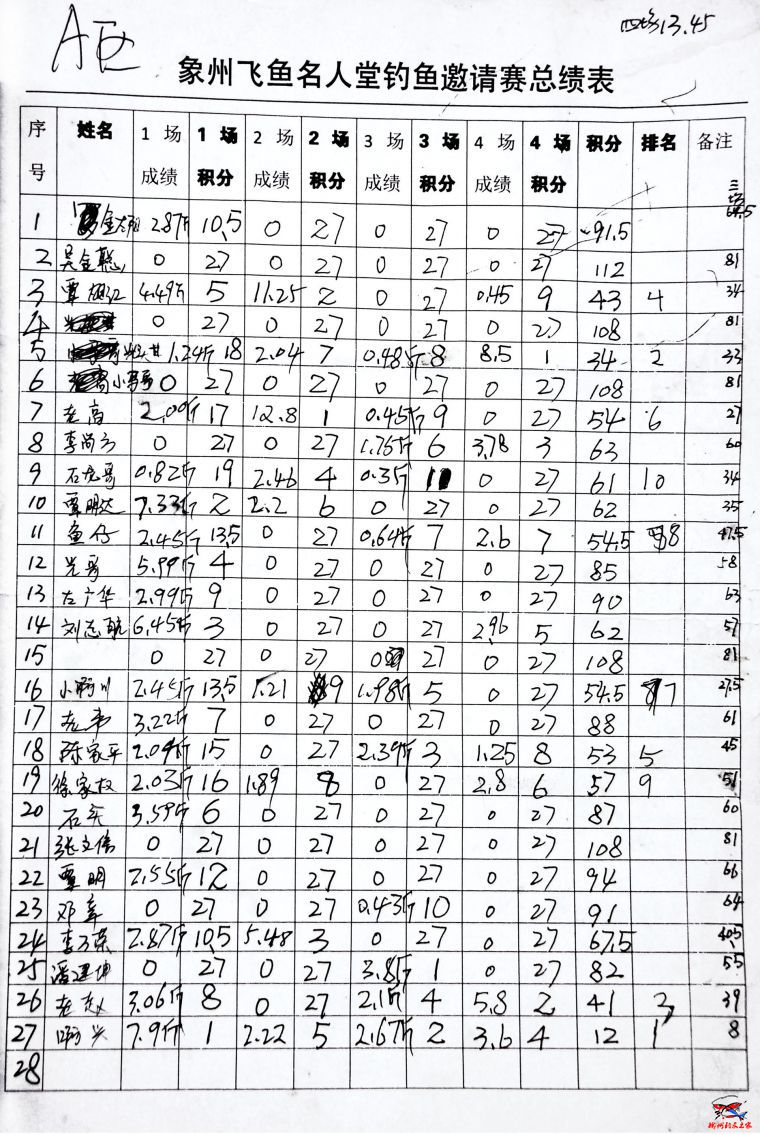 A区
四场13.45
象州飞鱼名人堂钓鱼邀请赛总绩表
序号 姓名 1场成绩 1场积分 2场成绩 2场积分 3场成绩 3场积分 4场成绩 4场积分 积分 排名 备注
三场
1 2.87斤 10.5 0 27 0 27 0 27 91.5 64.5
2 吴金聪 0 27 0 27 0 27 0 27 112 81
3 覃 4.49斤 5 11.25 2 0 27 0.45 9 43 4 34
4 0 27 0 27 0 27 0 27 108 81
5 1.24斤 18 2.04 7 0.48斤 8 8.5 1 34 2 33
6 小哥哥 0 27 0 27 0 27 0 27 108 81
7 老高 2.00斤 17 12.8 1 0.45斤 9 0 27 54 6 27
8 李尚 0 27 0 27 1.75斤 6 3.78 3 63 60
9 石龙哥 0.82斤 19 2.46 4 0.3斤 11 0 27 61 10 34
10 覃明达 7.33斤 2 2.2 6 0 27 0 27 62 35
11 鱼仔 2.45斤 13.5 0 27 0.64斤 7 2.6 7 54.5 8 47.5
12 光哥 5.99斤 4 0 27 0 27 0 27 85 58
13 左广华 2.99斤 9 0 27 0 27 0 27 90 63
14 刘志 6.45斤 3 0 27 0 27 2.96 5 62 57
15 0 27 0 27 0 27 0 27 108 81
16 小 2.45斤 13.5 1.21 9 1.98斤 5 0 27 54.5 7 27.5
17 老韦 3.22斤 7 0 27 0 27 0 27 88 61
18 陈家平 2.09斤 15 0 27 2.39斤 3 1.25 8 53 5 45
19 徐家权 2.03斤 16 1.89 8 0 27 2.8 6 57 9 51
20 石头 3.59斤 6 0 27 0 27 0 27 87 60
21 张文伟 0 27 0 27 0 27 0 27 108 81
22 覃明 2.55斤 12 0 27 0 27 0 27 94 66
23 邓章 0 27 0 27 0.43斤 10 0 27 91 64
24 李 2.87斤 10.5 5.48 3 0 27 0 27 67.5 40.5
25 潘建坤 0 27 0 27 3.8斤 1 0 27 82 55
26 老赵 3.06斤 8 0 27 2.1斤 4 5.8 2 41 3 39
27 啊兴 7.9斤 1 2.22 5 2.67斤 2 3.6 4 12 1 8
28
柳州钓友之家